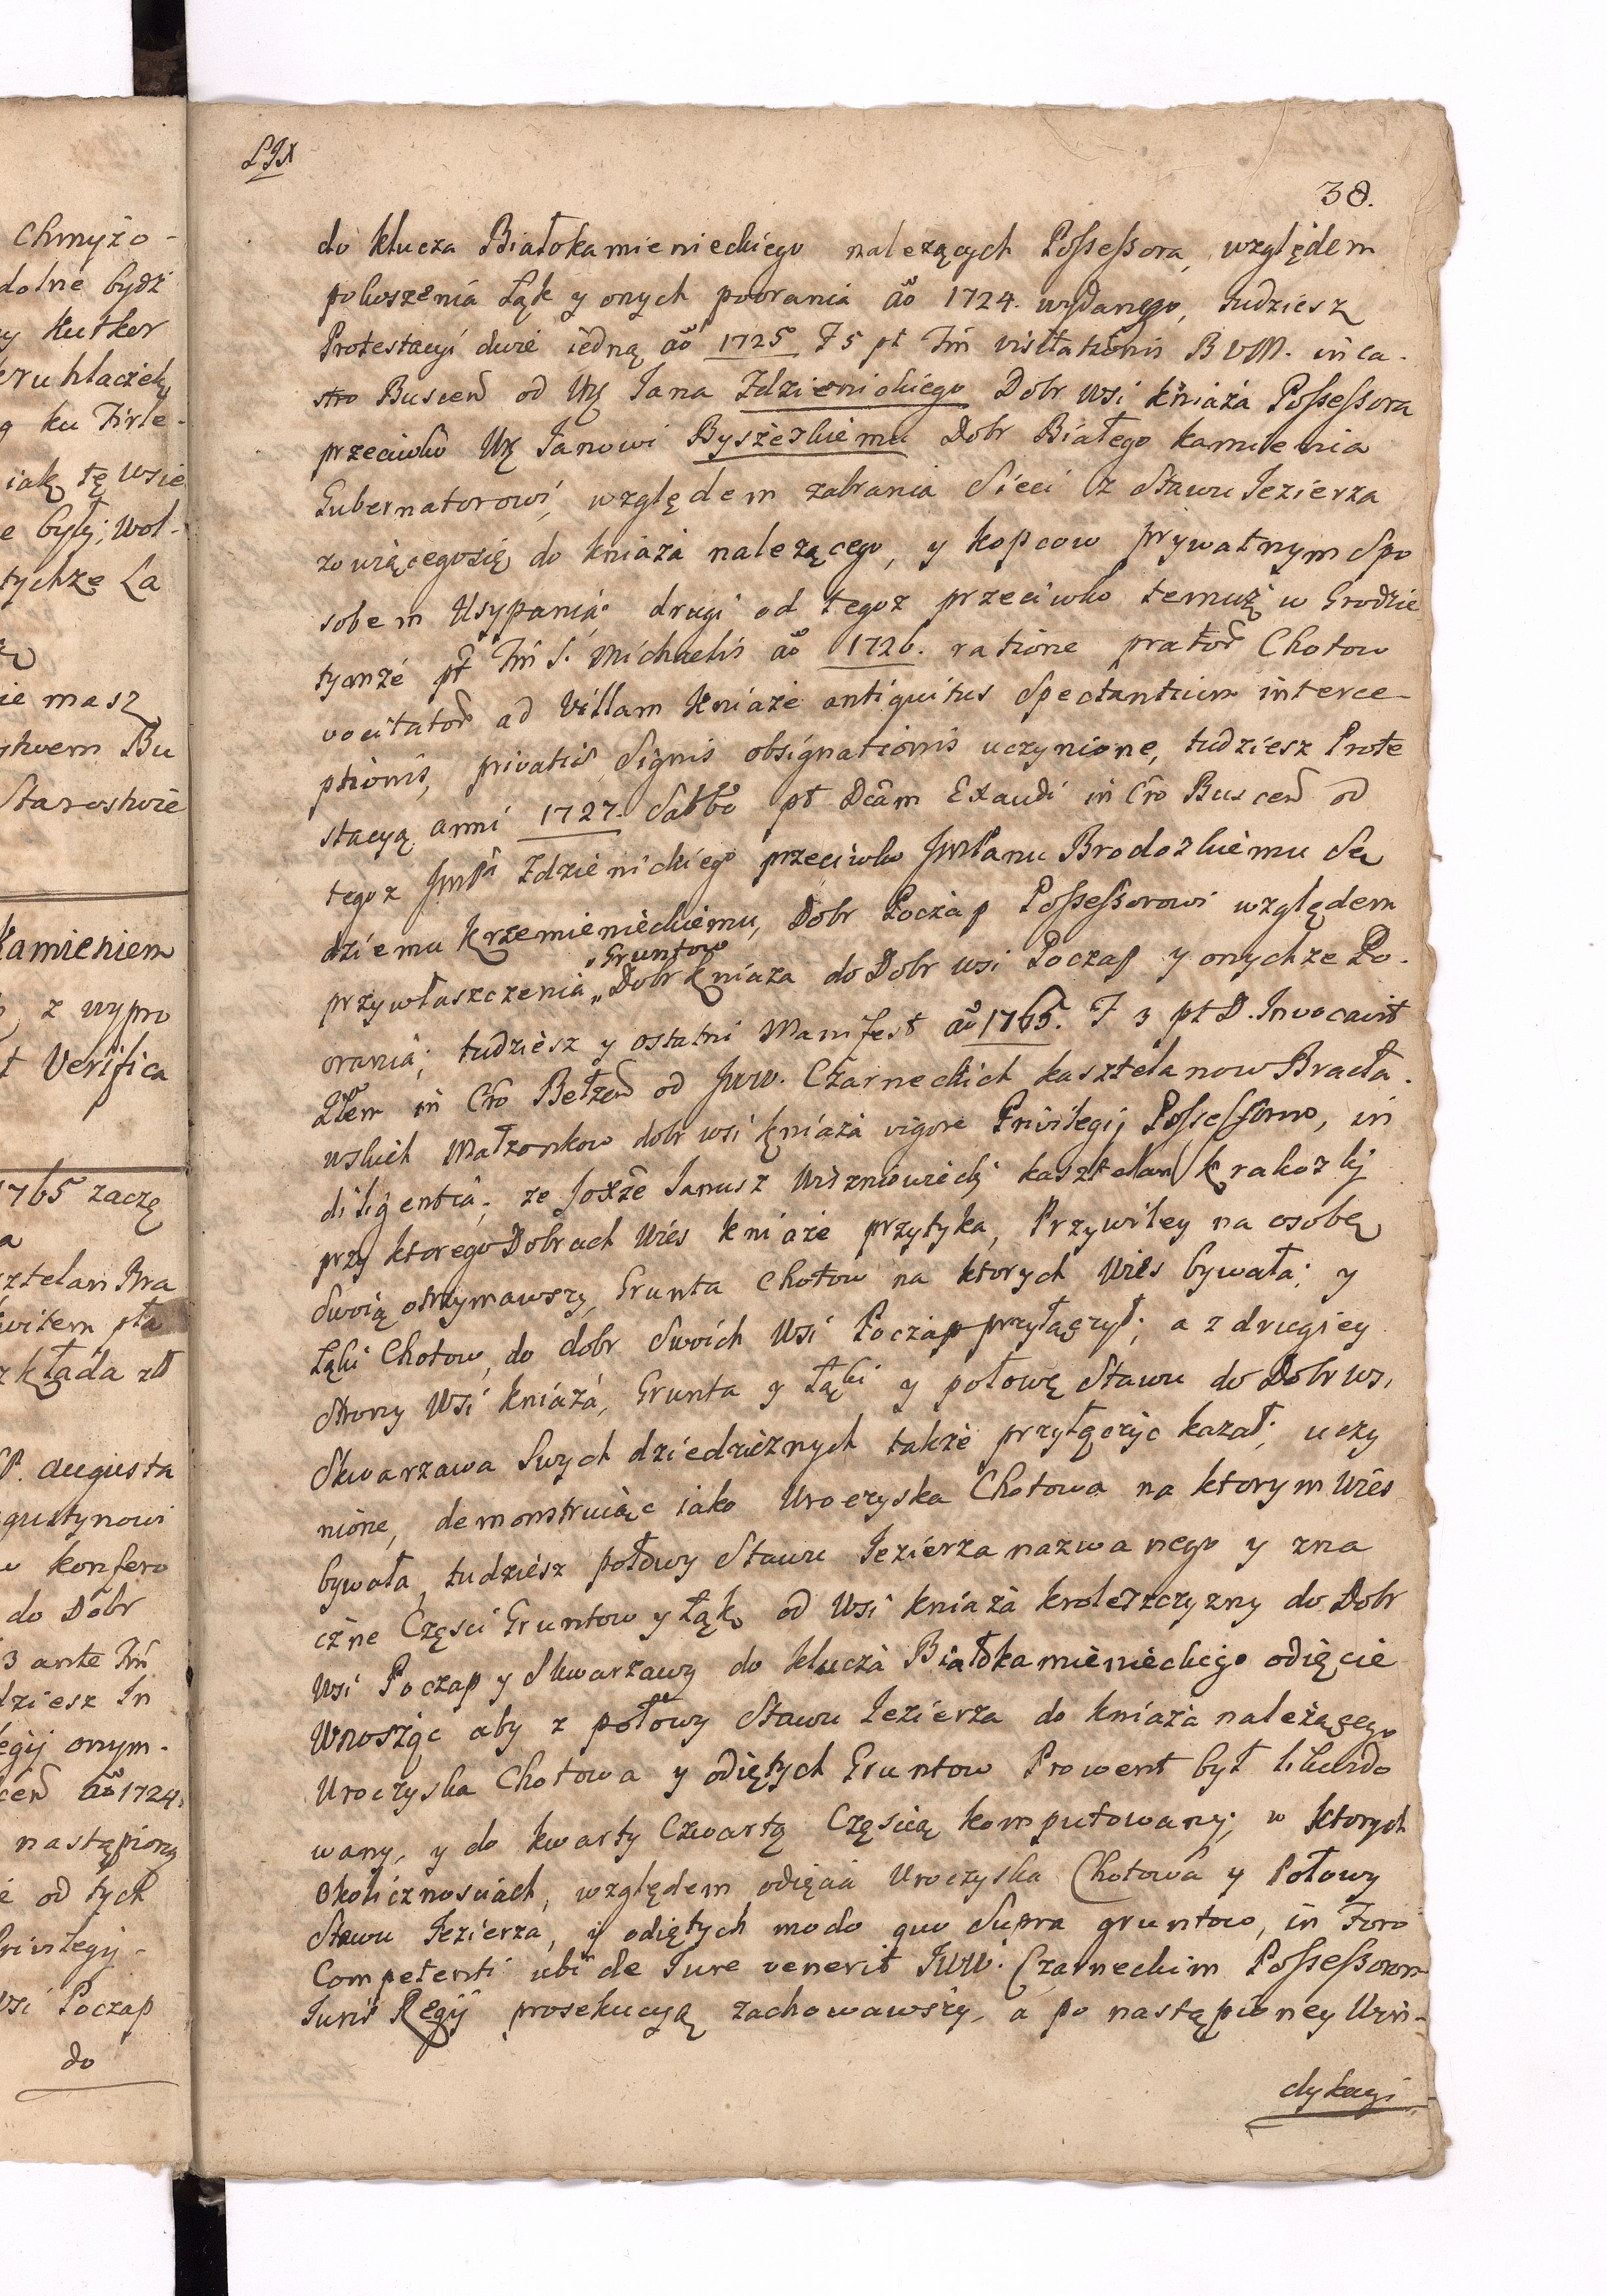 chmyżo-
dolne bydź
y kutkor
ku Firle-
iak tę wsie
e były; Wol-
tychże La
ie masz
Bu
Starostwie
Kamieniem
z wypro
t Verifica
1765 zaczę
sztelan Bra
kłada zł
P. Augusta
gustynowi
konfero
do Dobr
3 ante Fm
dziesz In
egij onym-
aō 1724.
nastąpioną
é od tych
Privilegij-
wsi Poczap
do
LIX
38.
do klucza Białokamienieckiego nalezących Possessora, względem
pokoszenia Łąk y onych poorania aō 1724. wydanego, tudziesz
Protestacyi dwie iedną aō 1725 F 5 pt Fm visitationis BVM. in ca-
stro Buscen od Ur Jana Zdzienickiego Dobr wsi kniaża Possessora
przeciwko Ur Janowi Byszeskiemu Dobr Białego kamienia
Gubernatorowi, względem zabrania Sieci z Stawu Jezierza
zowiącegosię do kniaża nalezącego, y kopcow prywatnym Spo
sobem Usypania: drugi od tegoz przeciwko temuż w Grodzie
tymże pt Fm S. Michaelis aō 1726. ratione prator Chotow
vocitator ad Villam Kniaże antiquitus Spectantium interce-
ptionis, privatis Signis obsignationis uczynione, tudziesz Prote
stacyą anni 1727. Sabbo pt Dcam Exaudi in Cro Buscen od
tegoz JmPa Zdzienickiego przeciwko JmPanu Brodoskiemu Sę
dziemu Krzemienieckiemu, Dobr Poczap Possessorowi względem
przywłaszczenia „Gruntow Dobr kniaza do Dobr wsi Poczap y onychże Po-
orania; tudziesz y ostatni Manifest aō 1765. F 3 pt D. Invocavit
in Cro Bełzen od Jww. Czarneckich kasztelanow Bracła-
wskich Małzonkow dobr wsi kniaża vigore Privilegij Possessorow, in
diligentia; ze Joxze Janusz Wiszniowiecki kasztelan krakoski
przy ktorego Dobrach Wies kniaże przytyka, Przywiley na osobę
Swoią otrzymawszy, Grunta Chotow na ktorych Wies bywała; y
Łąki Chotow, do dobr Swoich Wsi Poczap przyłączył; a z drugiey
Strony Wsi kniaża, Grunta y Łąki y połowę Stawu do Dobr wsi
Skwarzawa Swych dziedzicznych także przyłączyc kazał; uczy
nione, demonstruiąc iako Uroczyska Chotowa na ktorym Wies
bywała, tudziesz połowy Stawu Jezierza nazwanego y zna
czne Częsci Gruntow y Łąk, od Wsi kniaża krolesczyzny do Dobr
Wsi Poczap y Skwarzawy do klucza Białokamienieckiego odięcie
Wnosząc aby z połowy Stawu Jezierza do kniaża należącego
Uroczyska Chotowa y odiętych Gruntow Prowent był likwido
wany, y do kwarty Czwartą Częscią komputowany; w ktorych
Okolicznosciach, względem odięcia Uroczyska Chotowa y Połowy
Stawu Jezierza, y odiętych modo quo Supra gruntow, in Foro
Competenti ubi de Jure venerit JWW. Czarneckim Possessorom
Juris Regij prosekucyą zachowawszy, a po nastąpioney Win-
dykacyi